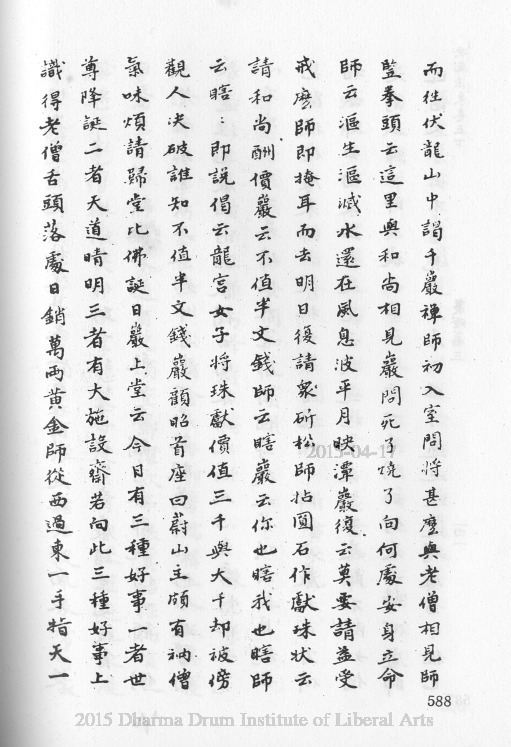 而往伏龍山中謁千巖禪師初入室問將甚麼與老僧相見師
豎拳頭云這里與和尚相見巖問死了燒了向何處安身立命
師云漚生漚滅水還在風息波平月映潭巖復云莫要請益受
戒麼師即掩耳而去明日復請眾斫松師拈圓石作獻珠狀云
請和尚酬價巖云不值半文錢師云瞎巖云你也瞎我也瞎師
云瞎瞎即說偈云龍宮女子將珠獻價值三千與大千却被傍
觀人决破誰知不值半文錢巖顧昭首座曰蔚山主頗有衲僧
氣味煩請歸堂比佛誕日巖上堂云今日有三種好事一者世
尊降誕二者天道晴明三者有大施設齋若向此三種好事上
識得老僧舌頭落處日銷萬兩黃金師從西過東一手指天一
588
2015-04-17
2015 Dharma Drum Institute of Liberal Arts